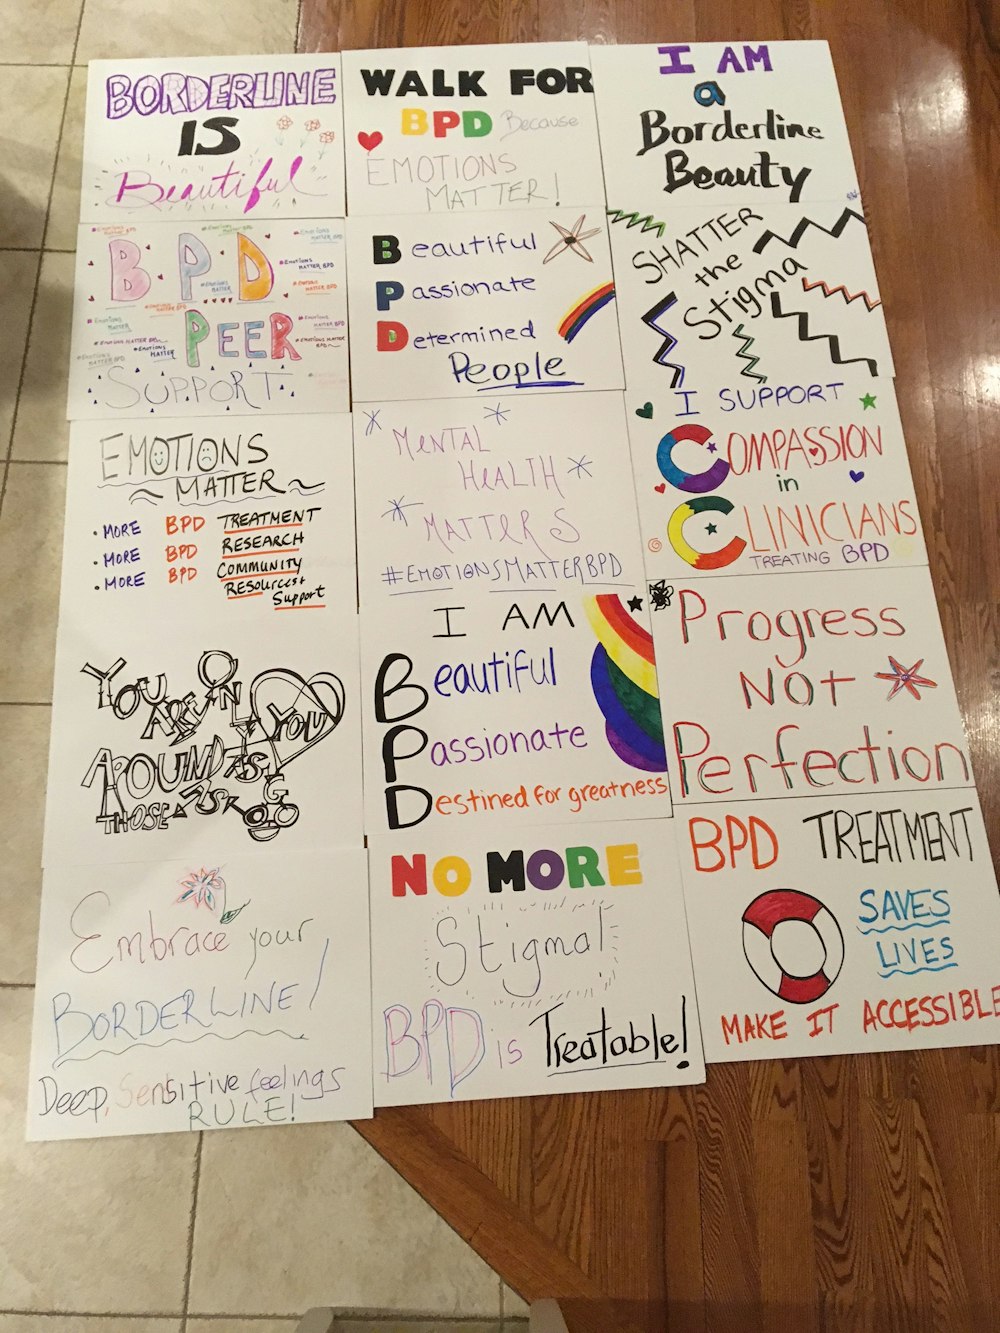 BORDERLINE
IS
Beautiful
WALK FOR
BPD Because
EMOTIONS
MATTER!
I AM
a
Borderline
Beauty
BPD
PEER
SUPPORT
#EMOTIONS MATTER BPD
Beautiful
Passionate
Determined
People
SHATTER
the
Stigma
EMOTIONS
~ MATTER ~
• MORE BPD TREATMENT
• MORE BPD RESEARCH
• MORE BPD COMMUNITY
RESOURCES +
Support
MENTAL
HEALTH
MATTERS
#EMOTIONSMATTERBPD
I SUPPORT
COMPASSION
in
CLINICIANS
TREATING BPD
YOU
ARE ONLY
AROUND
THOSE
YOU
I AM
Beautiful
Passionate
Destined for greatness
Progress
NOt
Perfection
Embrace your
BORDERLINE!
Deep, Sensitive feelings
RULE!
NO MORE
Stigma!
BPD is Treatable!
BPD TREATMENT
SAVES
LIVES
MAKE IT ACCESSIBLE